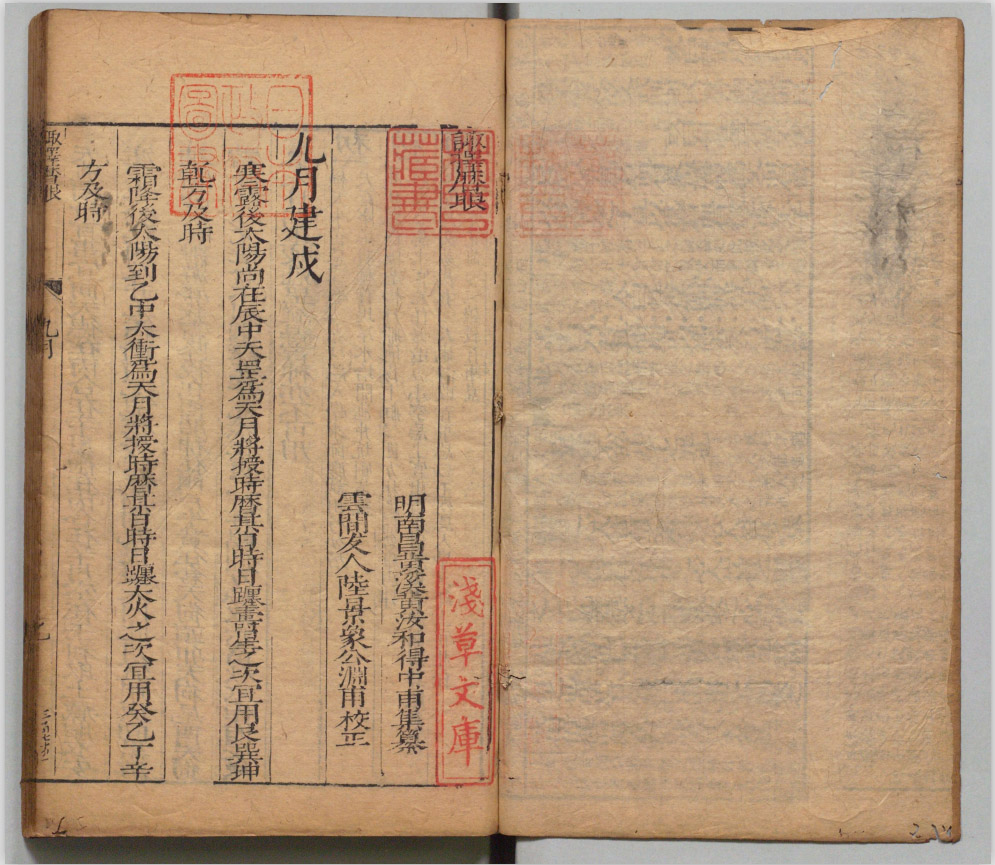 諏擇曆眼
明南昌貢溪黃汝和得中甫集纂
雲間友人陸景象公淵甫校正
九月建戌
寒露後太陽尚在辰中天罡爲天月將授時曆某日時日躔壽星之次宜用艮巽坤
乾方及時
霜降後太陽到乙中太衝爲天月將授時曆某日時日躔大火之次宜用癸乙丁辛
方及時
九月
淺草文庫
藏書
日本
政
圖書